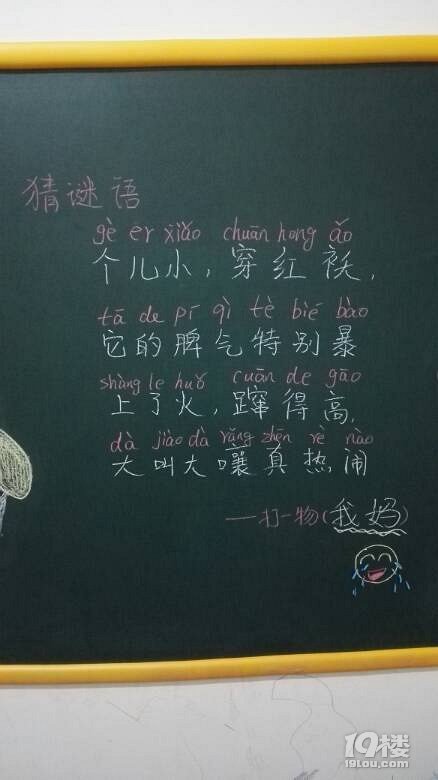 猜谜语
gè er xiǎo chuān hong ǎo
个儿小，穿红袄，
tā de pí qì tè bié bào
它的脾气特别暴
shàng le huǒ cuān de gāo
上了火，蹿得高，
dà jiào dà rǎng zhēn rè nào
大叫大嚷真热闹
——打一物(我妈)
19楼
19lou.com